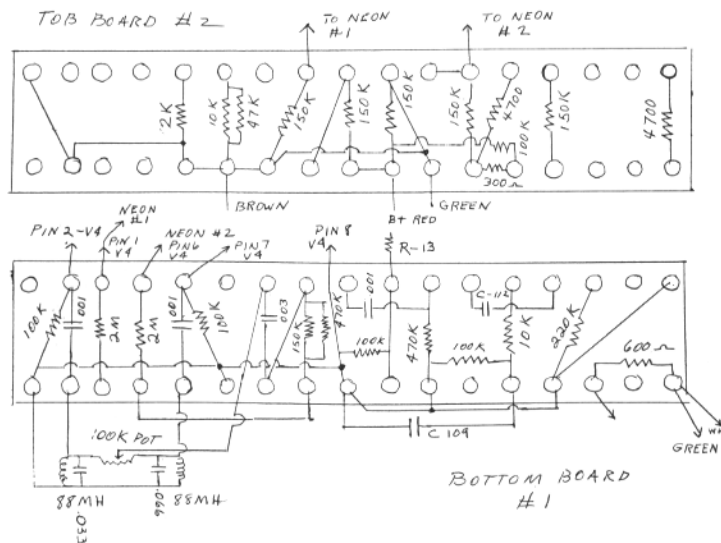 TOB BOARD #2
TO NEON #1
TO NEON #2
2K
10K
47K
150K
150K
150K
150K
4700
100K
150K
4700
300Ω
BROWN
B+ RED
GREEN
PIN 2-V4
NEON #1
PIN 1 V4
NEON #2
PIN 6 V4
PIN 7 V4
PIN 8 V4
R-13
100K
.001
2M
2M
.001
100K
.003
150K
470K
.001
100K
470K
C-112
100K
10K
220K
600Ω
C 109
100K POT
88MH
.033
.066
88MH
GREEN
WH
BOTTOM BOARD
#1